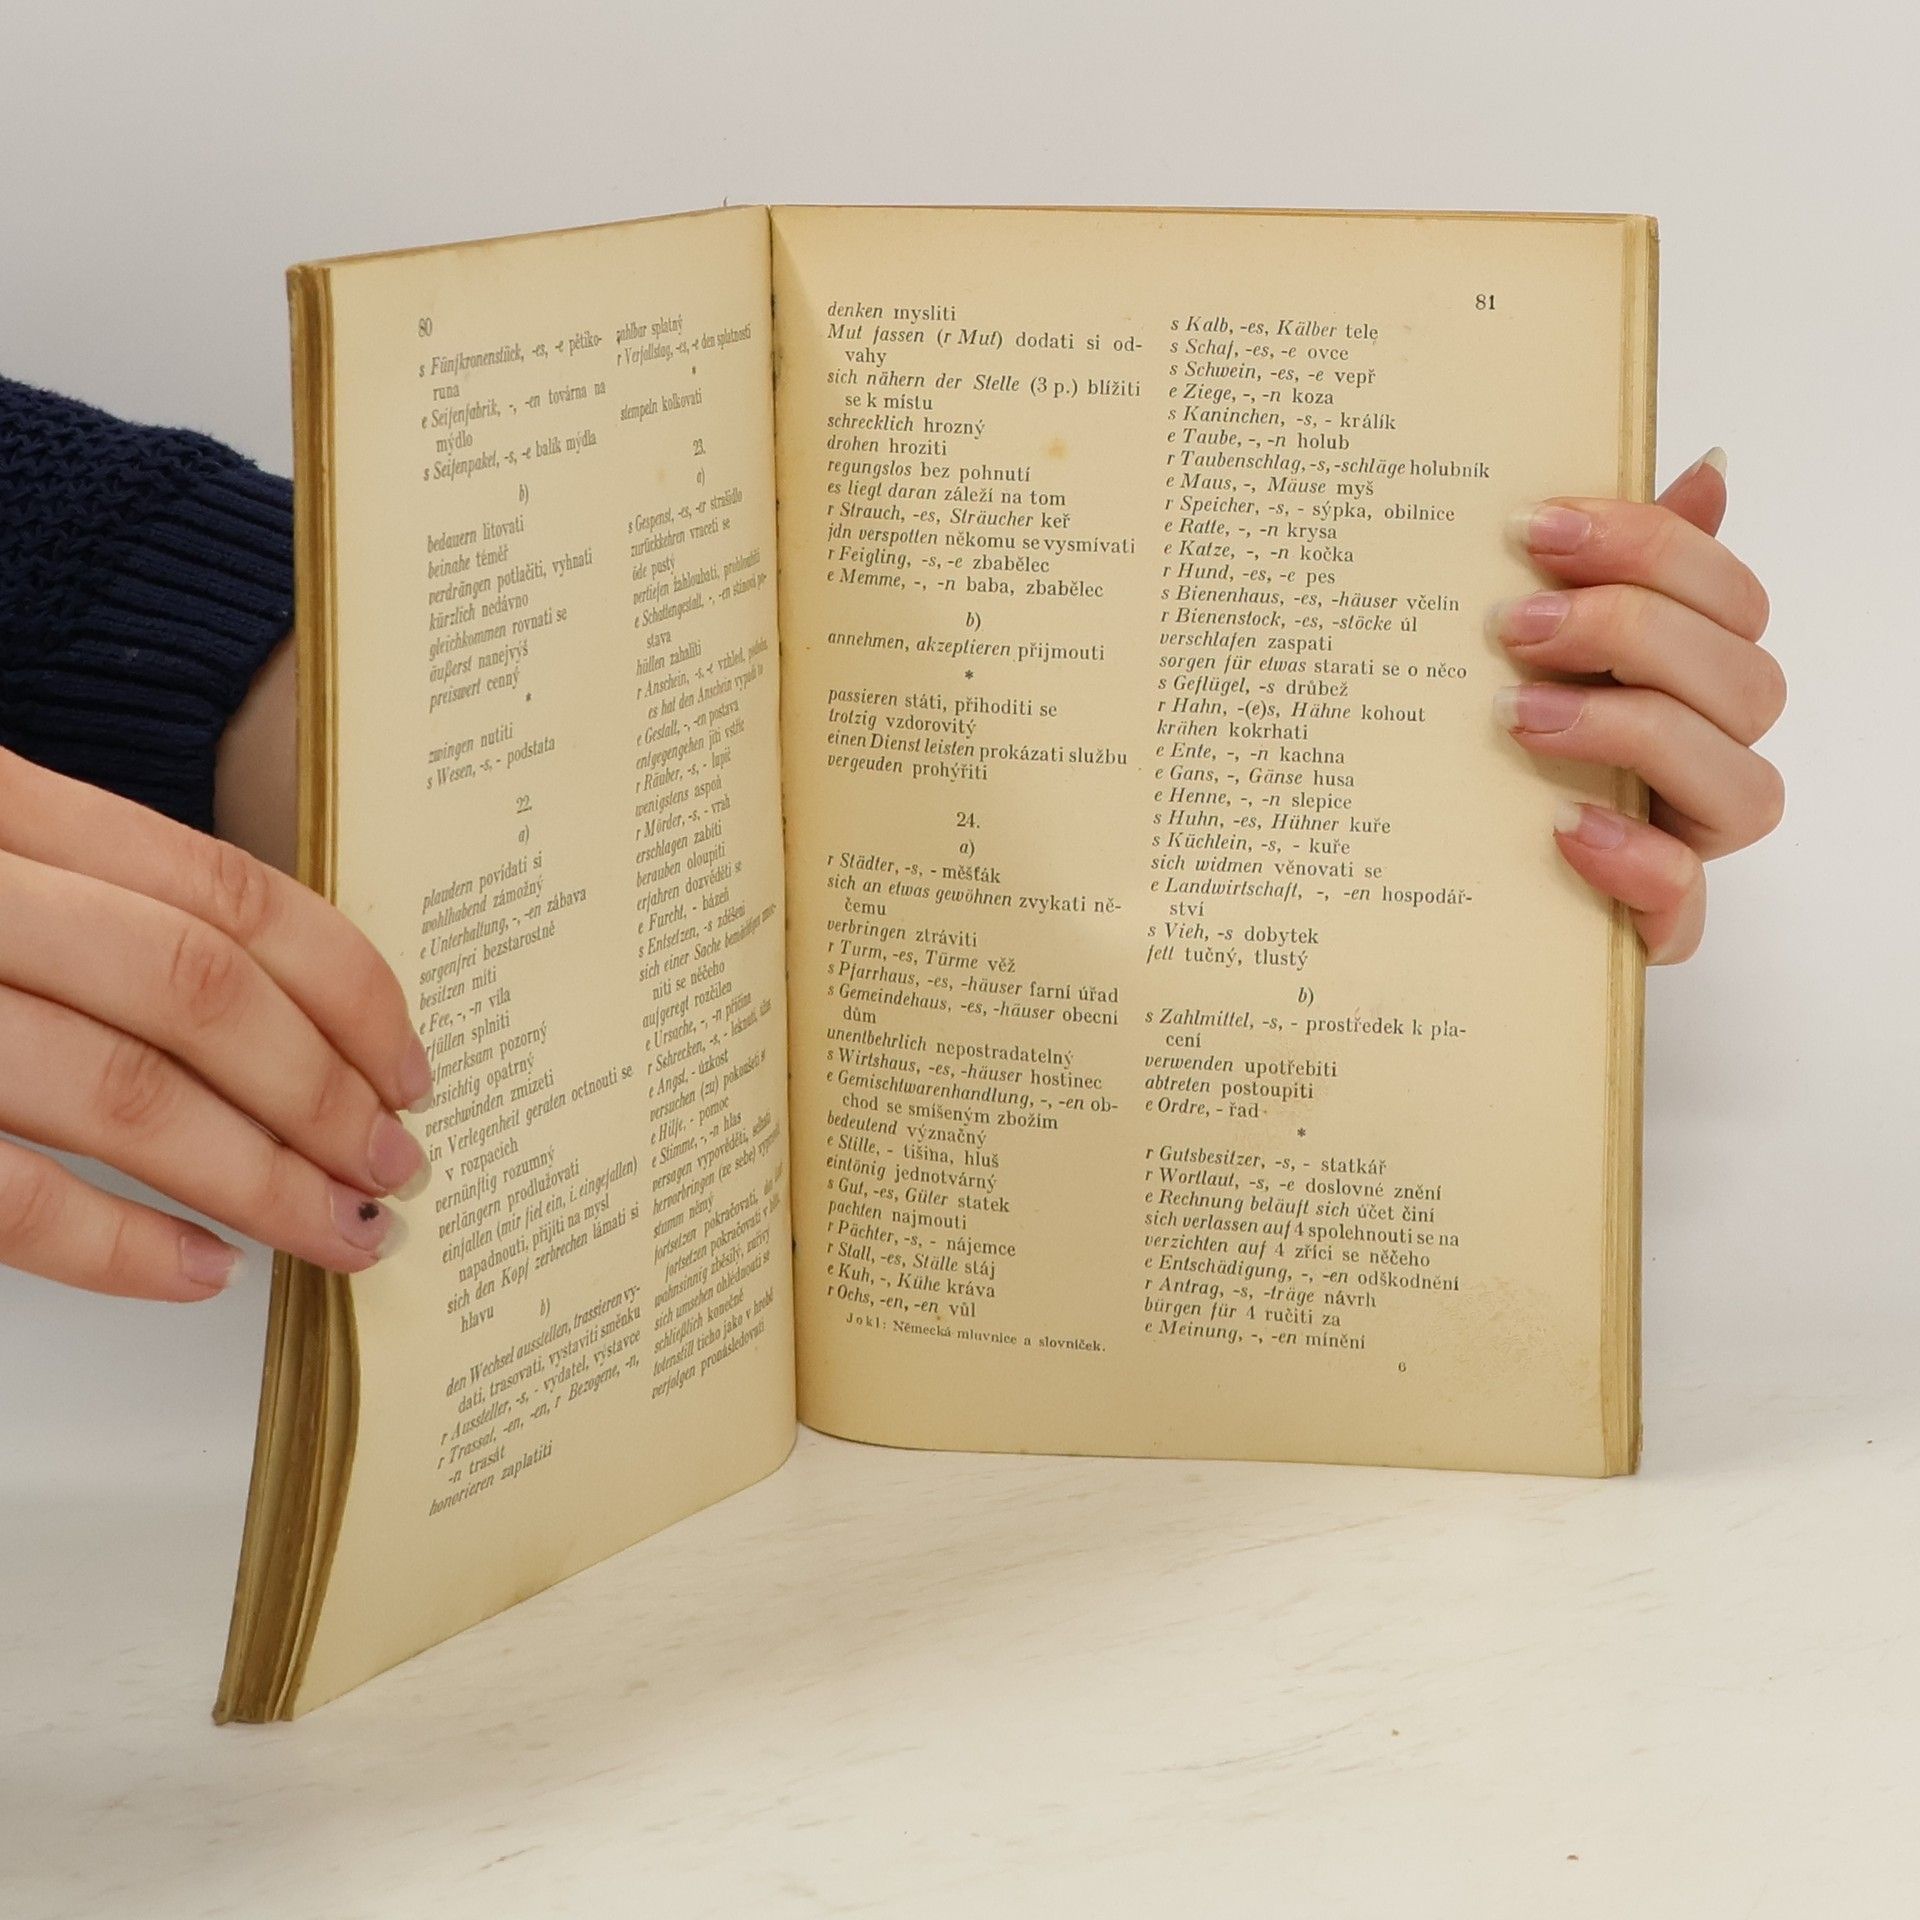 80
s Fünfkronenstück, -es, -e pětiko-
runa
e Seifenfabrik, -, -en továrna na
mýdlo
s Seifenpaket, -s, -e balík mýdla
b)
bedauern litovati
beinahe téměř
verdrängen potlačiti, vyhnati
kürzlich nedávno
gleichkommen rovnati se
äußerst nanejvýš
preiswert cenný
*
zwingen nutiti
s Wesen, -s, - podstata
22.
a)
plaudern povídati si
wohlhabend zámožný
e Unterhaltung, -, -en zábava
sorgenfrei bezstarostně
besitzen míti
e Fee, -, -n víla
rfüllen splniti
ufmerksam pozorný
orsichtig opatrný
verschwinden zmizeti
in Verlegenheit geraten octnouti se
v rozpacích
vernünftig rozumný
verlängern prodlužovati
einfallen (mir fiel ein, i. eingefallen)
napadnouti, přijíti na mysl
sich den Kopf zerbrechen lámati si
hlavu
b)
den Wechsel ausstellen, trassieren vy-
dati, trasovati, vystaviti směnku
r Aussteller, -s, - vydatel, výstavce
r Trassat, -en, -en, r Bezogene, -n,
-n trasát
honorieren zaplatiti
zahlbar splatný
r Verfallstag, -es, -e den splatnosti
*
stempeln kolkovati
23.
a)
s Gespenst, -es, -er strašidlo
zurückkehren vraceti se
öde pustý
vertiefen zahloubati, prohloubiti
e Schattengestalt, -, -en stínová po-
stava
hüllen zahaliti
r Anschein, -s, -e vzhled, podoba,
es hat den Anschein vypadá to
e Gestalt, -, -en postava
entgegengehen jíti vstříc
r Räuber, -s, - lupič
wenigstens aspoň
r Mörder, -s, - vrah
erschlagen zabíti
berauben oloupiti
erfahren dozvěděti se
e Furcht, - bázeň
s Entsetzen, -s zděšení
sich einer Sache bemächtigen zmoc-
niti se něčeho
aufgeregt rozčilen
e Ursache, -, -n příčina
r Schrecken, -s, - leknutí,
e Angst, - úzkost
versuchen (zu) pokoušeti se
e Hilfe, - pomoc
e Stimme, -, -n hlas
versagen vypověděti, selhati
hervorbringen (ze sebe)
stumm němý
fortsetzen pokračovati,
fortsetzen pokračovati v
wahnsinnig zběsilý, zuřivý
sich umsehen ohlédnouti se
schließlich konečně
totenstill ticho jako v hrobě
verfolgen pronásledovati
81
denken mysliti
Mut fassen (r Mut) dodati si od-
vahy
sich nähern der Stelle (3 p.) blížiti
se k místu
schrecklich hrozný
drohen hroziti
regungslos bez pohnutí
es liegt daran záleží na tom
r Strauch, -es, Sträucher keř
jdn verspotten někomu se vysmívati
r Feigling, -s, -e zbabělec
e Memme, -, -n baba, zbabělec
b)
annehmen, akzeptieren přijmouti
*
passieren státi, přihoditi se
trotzig vzdorovitý
einen Dienst leisten prokázati službu
vergeuden prohýřiti
24.
a)
r Städter, -s, - měšťák
sich an etwas gewöhnen zvykati ně-
čemu
verbringen ztráviti
r Turm, -es, Türme věž
s Pfarrhaus, -es, -häuser farní úřad
s Gemeindehaus, -es, -häuser obecní
dům
unentbehrlich nepostradatelný
s Wirtshaus, -es, -häuser hostinec
e Gemischtwarenhandlung, -, -en ob-
chod se smíšeným zbožím
bedeutend význačný
e Stille, - tišina, hluš
eintönig jednotvárný
s Gut, -es, Güter statek
pachten najmouti
r Pächter, -s, - nájemce
r Stall, -es, Ställe stáj
e Kuh, -, Kühe kráva
r Ochs, -en, -en vůl
Jokl: Německá mluvnice a slovníček.
s Kalb, -es, Kälber tele
s Schaf, -es, -e ovce
s Schwein, -es, -e vepř
e Ziege, -, -n koza
s Kaninchen, -s, - králík
e Taube, -, -n holub
r Taubenschlag, -s, -schläge holubník
e Maus, -, Mäuse myš
r Speicher, -s, - sýpka, obilnice
e Ratte, -, -n krysa
e Katze, -, -n kočka
r Hund, -es, -e pes
s Bienenhaus, -es, -häuser včelín
r Bienenstock, -es, -stöcke úl
verschlafen zaspati
sorgen für etwas starati se o něco
s Geflügel, -s drůbež
r Hahn, -(e)s, Hähne kohout
krähen kokrhati
e Ente, -, -n kachna
e Gans, -, Gänse husa
e Henne, -, -n slepice
s Huhn, -es, Hühner kuře
s Küchlein, -s, - kuře
sich widmen věnovati se
e Landwirtschaft, -, -en hospodář-
ství
s Vieh, -s dobytek
fett tučný, tlustý
b)
s Zahlmittel, -s, - prostředek k pla-
cení
verwenden upotřebiti
abtreten postoupiti
e Ordre, - řad
*
r Gutsbesitzer, -s, - statkář
r Wortlaut, -s, -e doslovné znění
e Rechnung beläuft sich účet činí
sich verlassen auf 4 spolehnouti se na
verzichten auf 4 zříci se něčeho
e Entschädigung, -, -en odškodnění
r Antrag, -s, -träge návrh
bürgen für 4 ručiti za
e Meinung, -, -en mínění
6